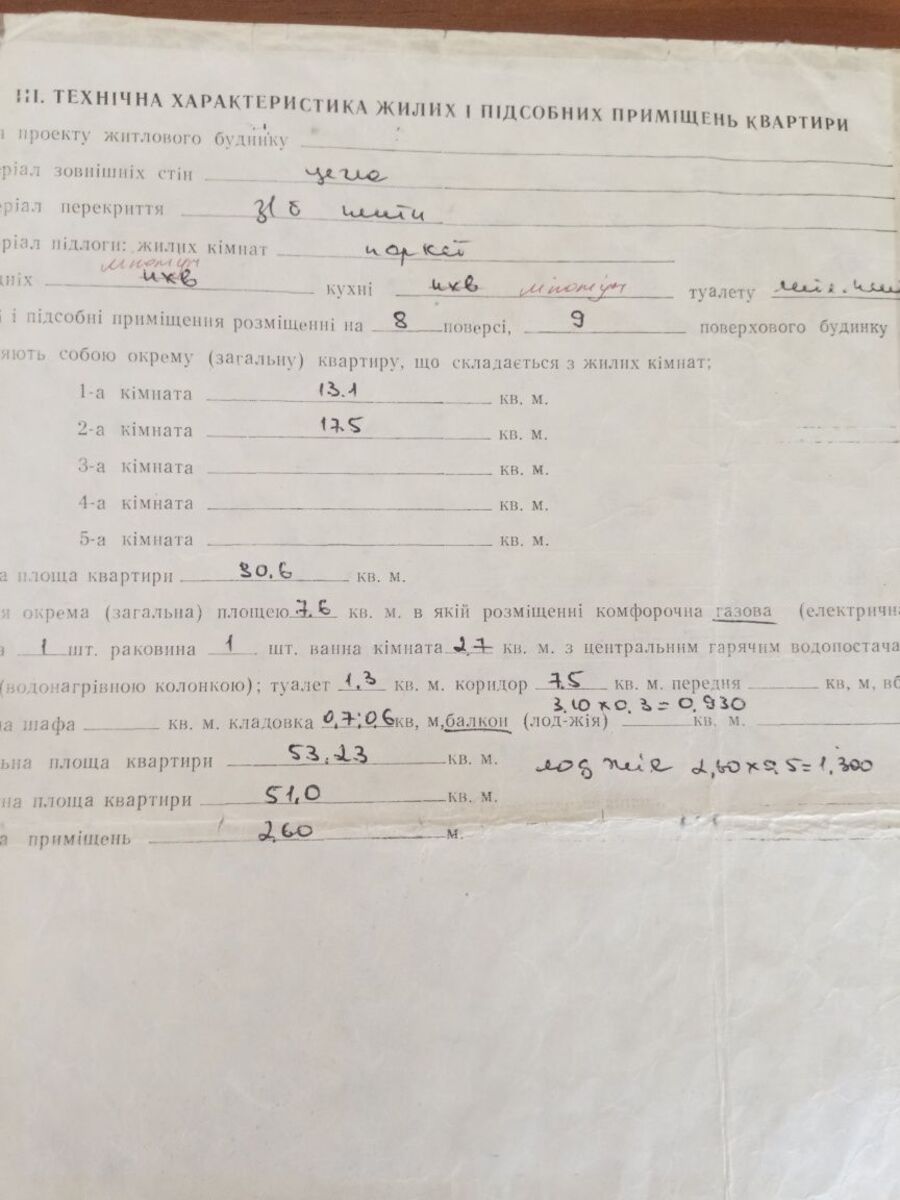 III. ТЕХНІЧНА ХАРАКТЕРИСТИКА ЖИЛИХ І ПІДСОБНИХ ПРИМІЩЕНЬ КВАРТИРИ
проекту житлового будинку
ріал зовнішніх стін цегла
ріал перекриття з/б плити
ріал підлоги: жилих кімнат паркет
ліноліум
дніх пхв кухні пхв ліноліум туалету
і підсобні приміщення розміщенні на 8 поверсі, 9 поверхового будинку
яють собою окрему (загальну) квартиру, що складається з жилих кімнат;
1-а кімната 13.1 кв. м.
2-а кімната 17.5 кв. м.
3-а кімната кв. м.
4-а кімната кв. м.
5-а кімната кв. м.
а площа квартири 30.6 кв. м.
я окрема (загальна) площею 7.6 кв. м. в якій розміщенні комфорочна газова (електрична
а 1 шт. раковина 1 шт. ванна кімната 2,7 кв. м. з центральним гарячим водопостача
(водонагрівною колонкою); туалет 1,3 кв. м. коридор 7.5 кв. м. передня кв, м, вб
3.10 x 0.3 = 0.930
на шафа кв. м. кладовка 0,7; 0,6 кв, м, балкон (лод-жія) кв. м.
ьна площа квартири 53.23 кв. м. лоджія 2,60 x 0,5 = 1,300
на площа квартири 51,0 кв. м.
а приміщень 2,60 м.